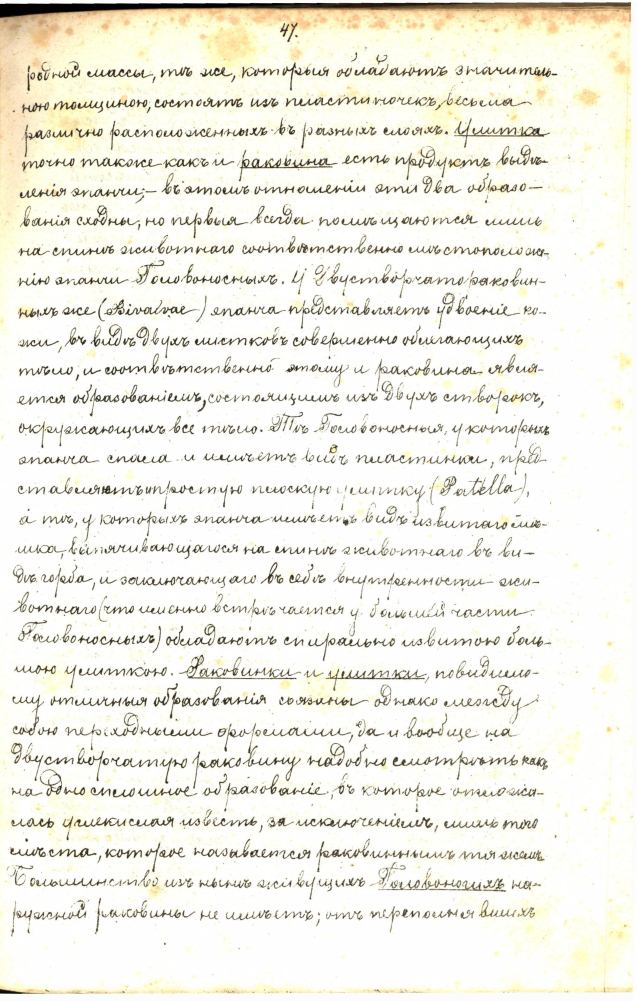 47.
родной массы, тѣ же, которыя обладаютъ значитель-
ною толщиною, состоятъ изъ пластиночекъ, весьма
различно расположенныхъ въ разныхъ слояхъ. Улитка
точно также какъ и раковина есть продуктъ выдѣ-
ленія эпанчи; – въ этомъ отношеніи эти два образо-
ванія сходны, но первыя всегда помѣщаются лишь
на спинѣ животнаго соотвѣтственно мѣстополож-
нію эпанчи Головоносныхъ. У Двустворчатораковин-
ныхъ же (Bivalvae) эпанча представляетъ удвоеніе ко-
жи, въ видѣ двухъ листковъ совершенно облегающихъ
тѣло, и соотвѣтственно этому и раковина явля-
ется образованіемъ, состоящимъ изъ двухъ створокъ,
окружающихъ все тѣло. Тѣ Головоносныя, у которыхъ
эпанча спала и имѣетъ видъ пластинки, пред-
ставляютъ простую плоскую улитку (Patella),
а тѣ, у которыхъ эпанча имѣетъ видъ извитаго мѣ-
шка, выпячивающагося на спинѣ животнаго въ ви-
дѣ горба, и заключающаго въ себѣ внутренности жи-
вотнаго (что именно встрѣчается у большей части
Головоносныхъ) обладаютъ спирально извитою боль-
шою улиткою. Раковинки и улитки, повидимо-
му отличныя образованія связаны однако между
собою переходными формами, да и вообще на
двустворчатую раковину надобно смотрѣть какъ
на одно сплошное образованіе, въ которое отложи-
лась углекислая известь, за исключеніемъ, лишь того
мѣста, которое называется раковиннымъ тяжемъ
Большинство изъ нынѣ живущихъ Головоногихъ на-
ружной раковины не имѣетъ; отъ переполнявшихъ